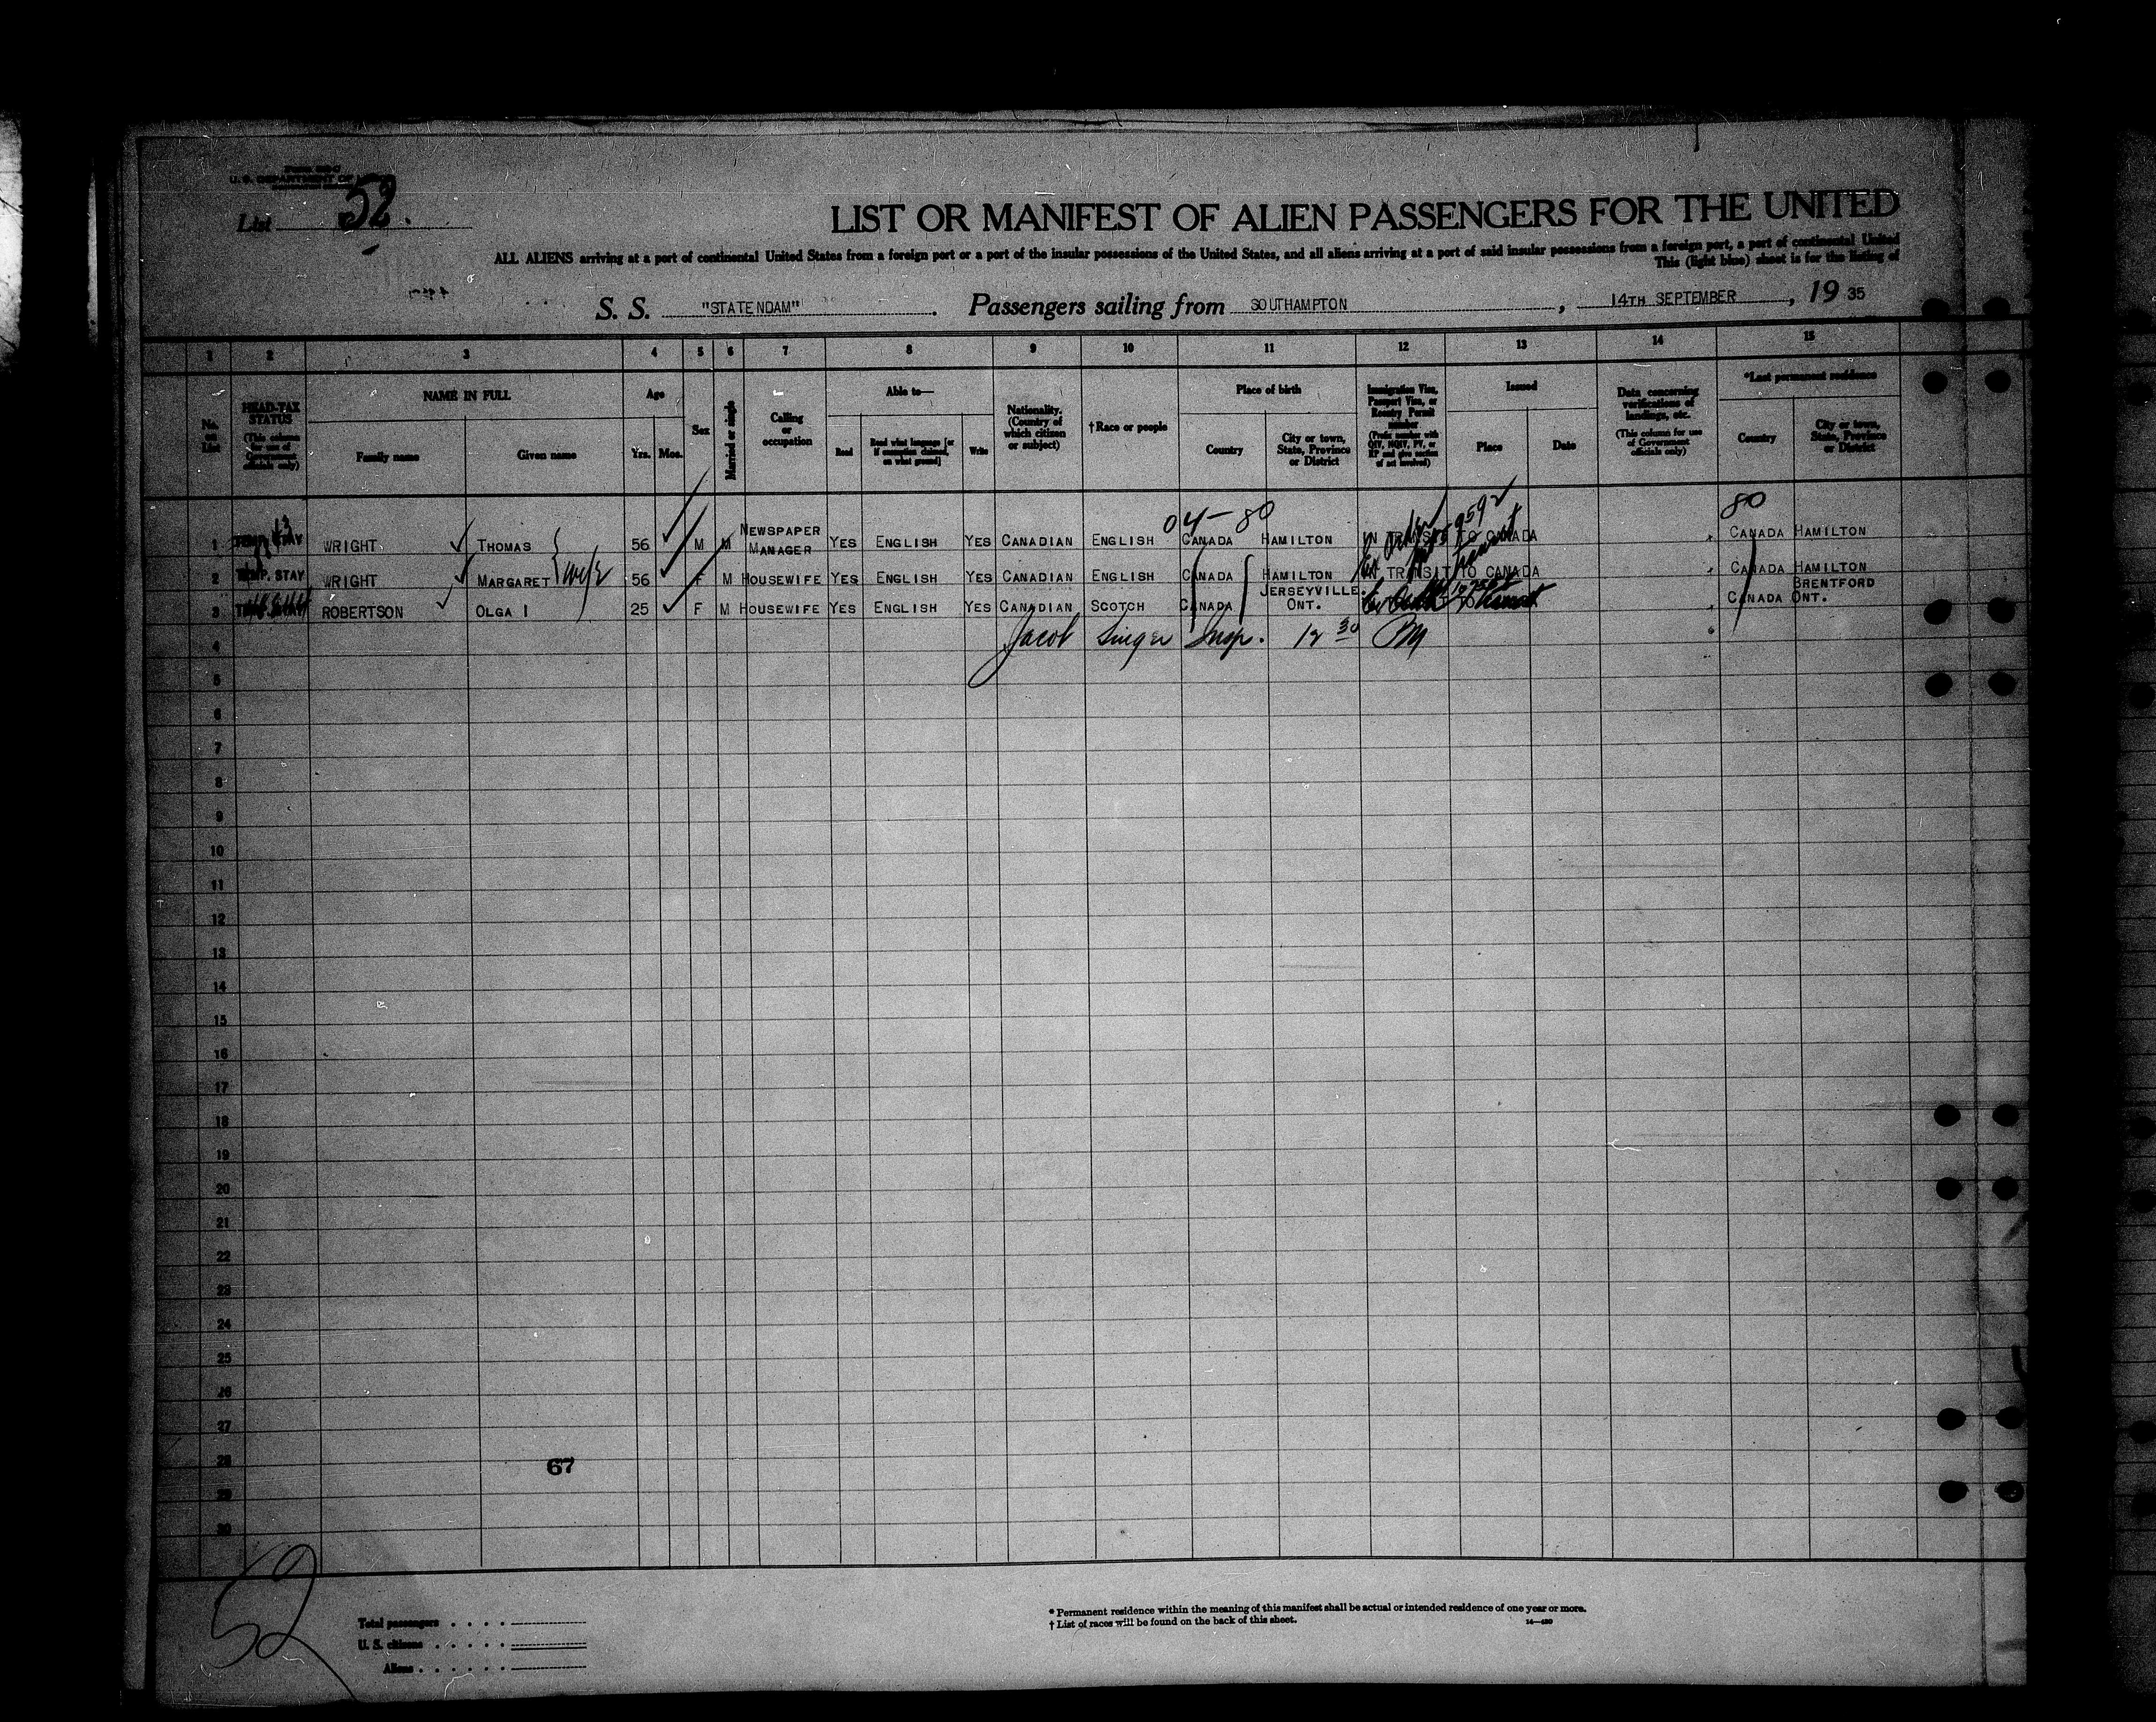 U. S. DEPARTMENT OF
List 52.
LIST OR MANIFEST OF ALIEN PASSENGERS FOR THE UNITED
ALL ALIENS arriving at a port of continental United States from a foreign port or a port of the insular possessions of the United States, and all aliens arriving at a port of said insular possessions from a foreign port, a port of continental United
This (light blue) sheet is for the listing of
S. S. "STATENDAM". Passengers sailing from SOUTHAMPTON, 14TH SEPTEMBER, 19 35
1 2 3 4 5 6 7 8 9 10 11 12 13 14 15
No. on List
HEAD-TAX STATUS (This column for use of Government officials only)
NAME IN FULL
Family name
Given name
Age
Yrs.
Mos.
Sex
Married or single
Calling or occupation
Able to—
Read
Read what language [or if exemption claimed, on what ground]
Write
Nationality. (Country of which citizen or subject)
† Race or people
Place of birth
Country
City or town, State, Province or District
Immigration Visa, Passport Visa, or Reentry Permit number (Prefix number with QIV, NQIV, PV, or RP and give section of act involved)
Issued
Place
Date
Data concerning verifications of landings, etc. (This column for use of Government officials only)
*Last permanent residence
Country
City or town, State, Province or District
04-80 80
1 TEMP. STAY WRIGHT THOMAS 56 M M NEWSPAPER MANAGER YES ENGLISH YES CANADIAN ENGLISH CANADA HAMILTON IN TRANSIT TO CANADA CANADA HAMILTON
2 TEMP. STAY WRIGHT MARGARET wife 56 F M HOUSEWIFE YES ENGLISH YES CANADIAN ENGLISH CANADA HAMILTON IN TRANSIT TO CANADA CANADA HAMILTON
3 ROBERTSON OLGA I 25 F M HOUSEWIFE YES ENGLISH YES CANADIAN SCOTCH CANADA JERSEYVILLE. ONT. CANADA BRENTFORD ONT.
4 Jacob Singer Insp. 12 30 PM
5
6
7
8
9
10
11
12
13
14
15
16
17
18
19
20
21
22
23
24
25
26
27
28 67
29
30
52
Total passengers
U. S. citizens
Aliens
* Permanent residence within the meaning of this manifest shall be actual or intended residence of one year or more.
† List of races will be found on the back of this sheet. 14—420